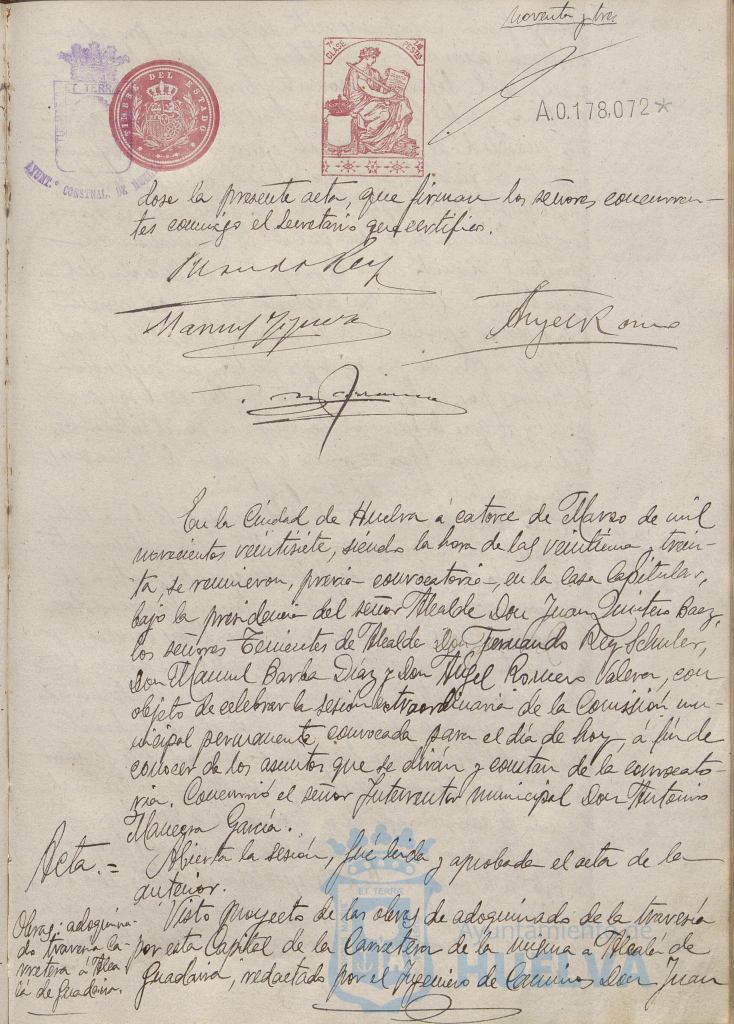 noventa y tres
7ª CLASE
PESTAS
TIMBRE DEL ESTADO
ET TERRA
AYUNT.º CONSTNAL. DE
A.0.178,072*
dose la presente acta, que firman los señores concurren-
tes conmigo el Secretario que certifico.
Fernando Rey
Manuel
Angel Romero
En la Ciudad de Huelva á catorce de Marzo de mil
novecientos veintisiete, siendo la hora de las veintiuna y trein-
ta, se reunieron, previa convocatoria, en la casa Capitular,
bajo la presidencia del señor Alcalde Don Juan Quintero Baez,
los señores Tenientes de Alcalde Don Fernando Rey Schuler,
Don Manuel Barba Diaz y Don Angel Romero Valera, con
objeto de celebrar la sesión extraordinaria de la Comisión mu-
nicipal permanente, convocada para el día de hoy, á fin de
conocer de los asuntos que se dirán y constan de la convocato-
ria. Concurrió el señor Interventor municipal Don Antonio
García.
Acta.= Abierta la sesión, fué leida y aprobada el acta de la
anterior.
Obras: adoquina-
do travesia ca-
rretera á Alca-
lá de Guadaira.
Visto proyecto de las obras de adoquinado de la travesía
por esta Capital de la Carretera de la misma a Alcalá de
Guadaira, redactado por el Ingeniero de Caminos Don Juan
ET TERRA
Ayuntamiento de
HUELVA